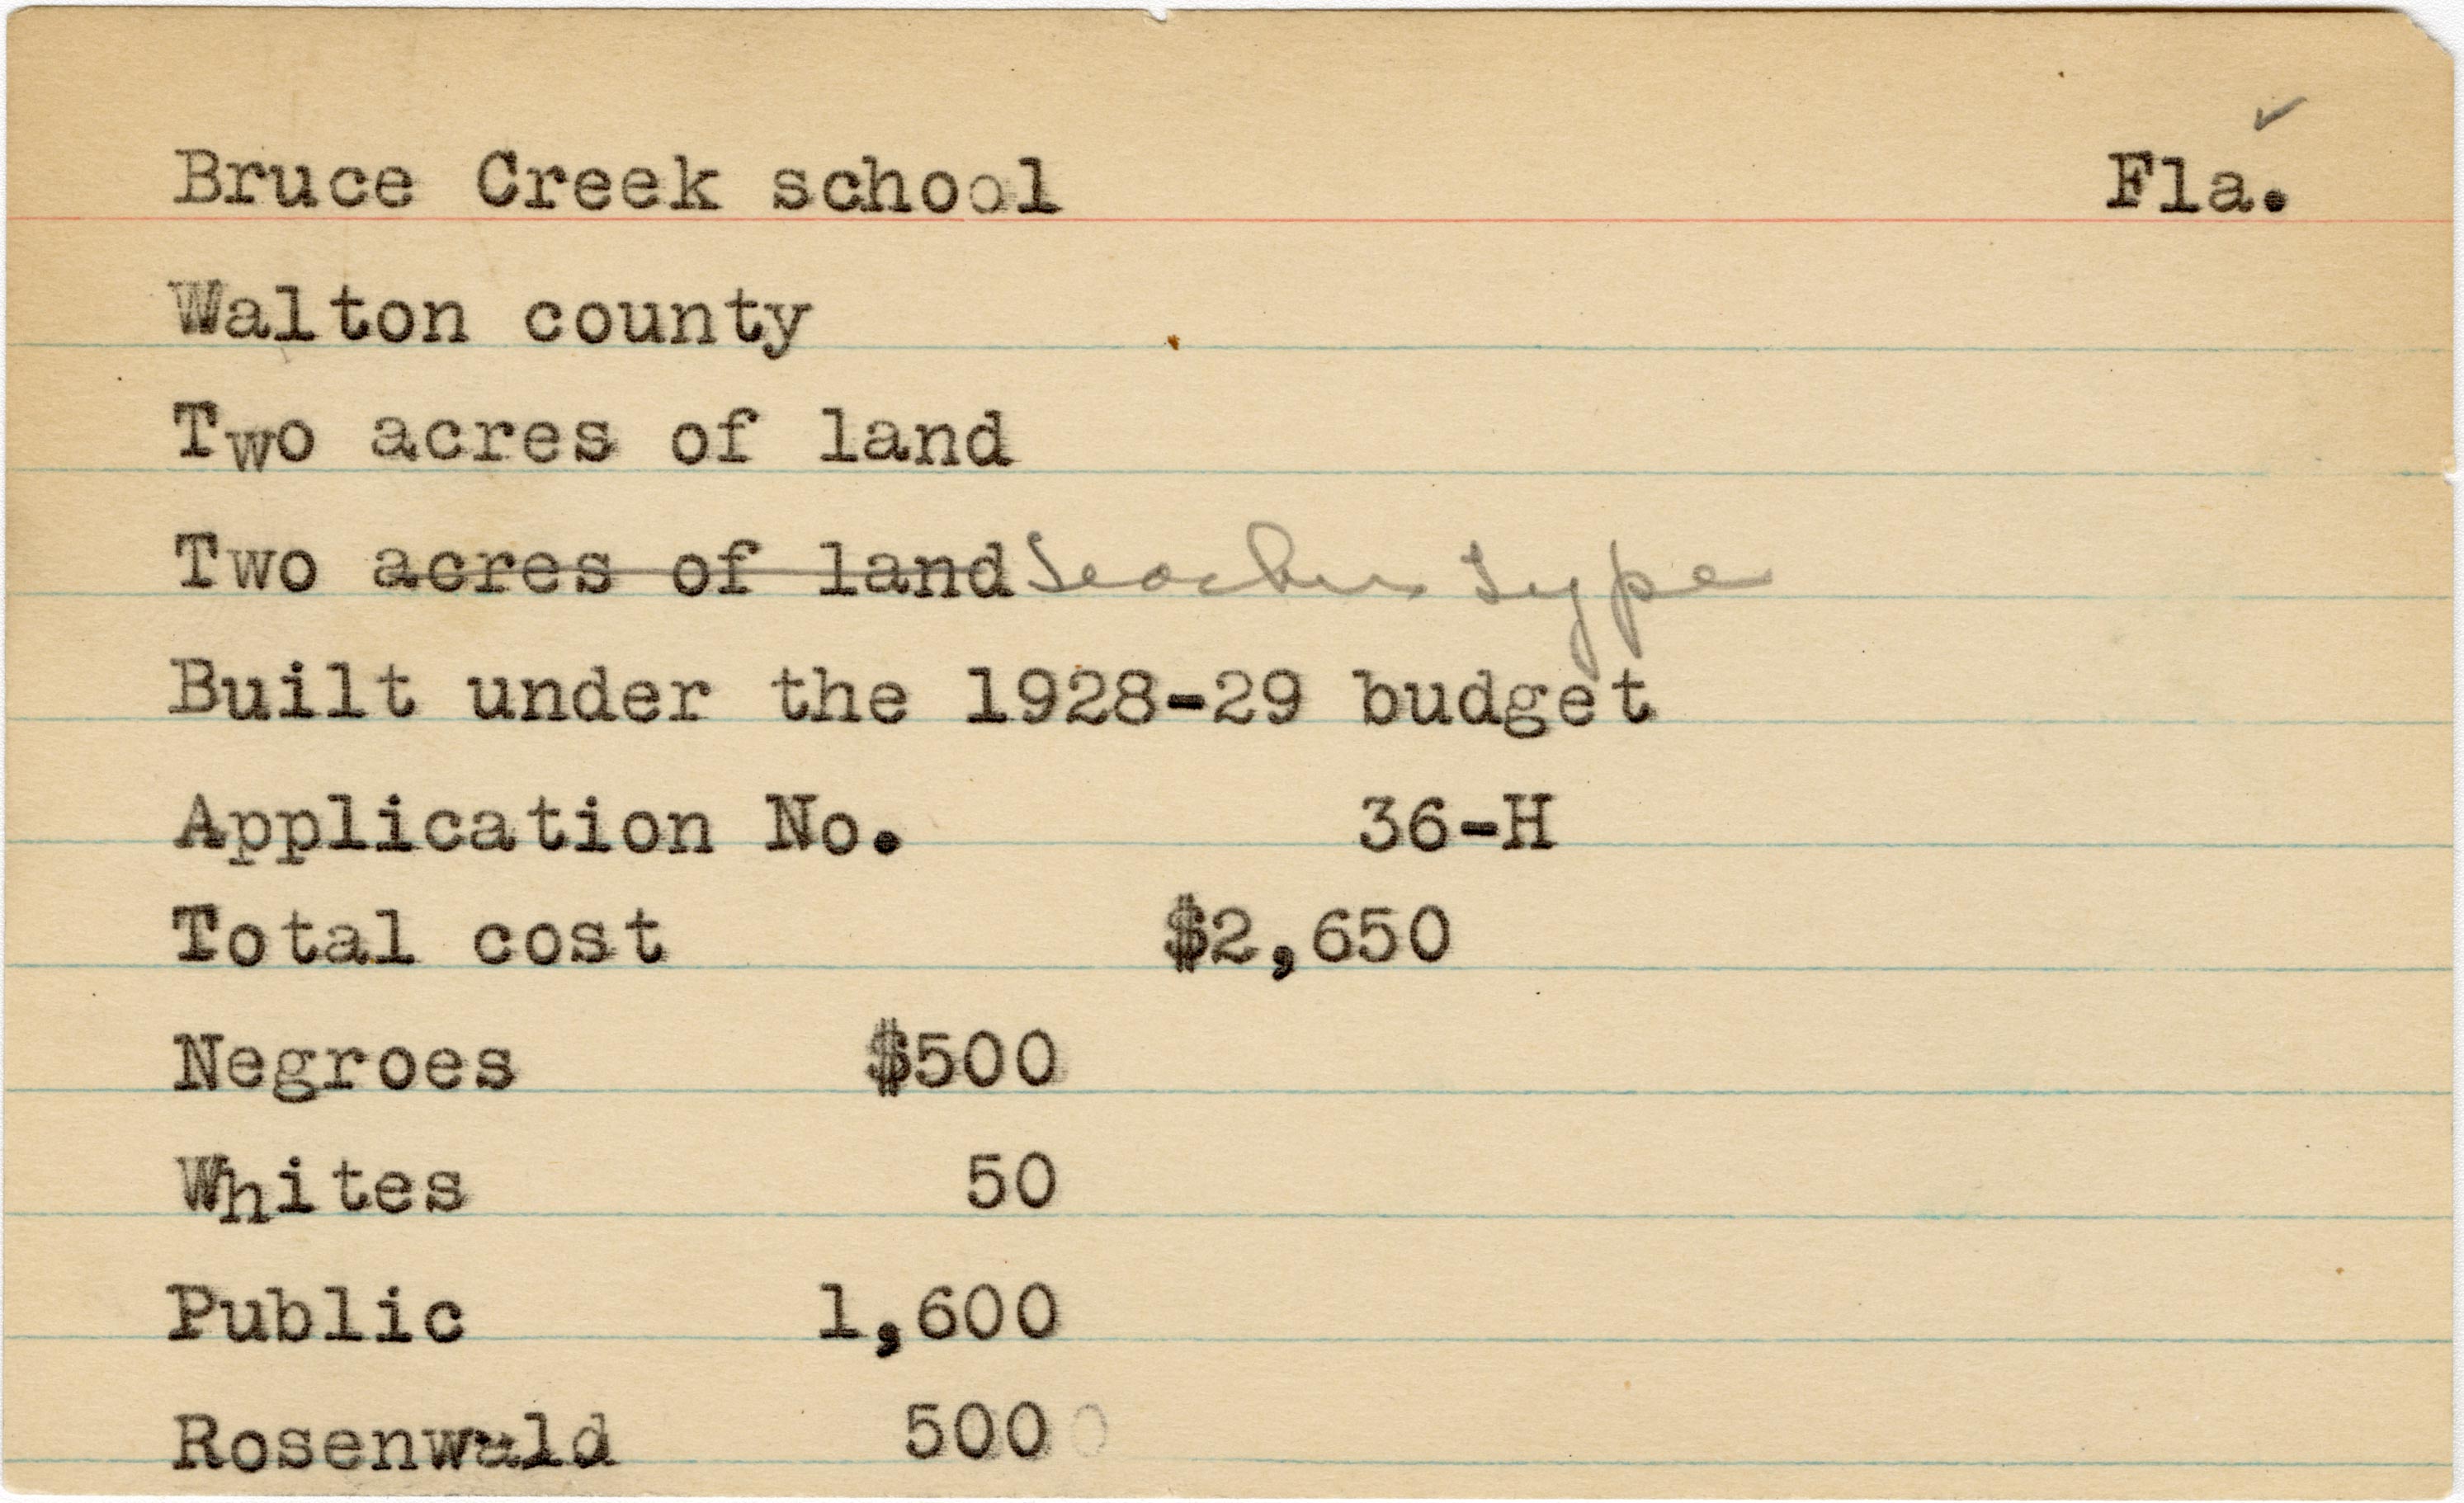 Bruce Creek school Fla.
Walton county
Two acres of land
Two acres of land Teacher Type
Built under the 1928-29 budget
Application No. 36-H
Total cost $2,650
Negroes $500
Whites 50
Public 1,600
Rosenwald 500